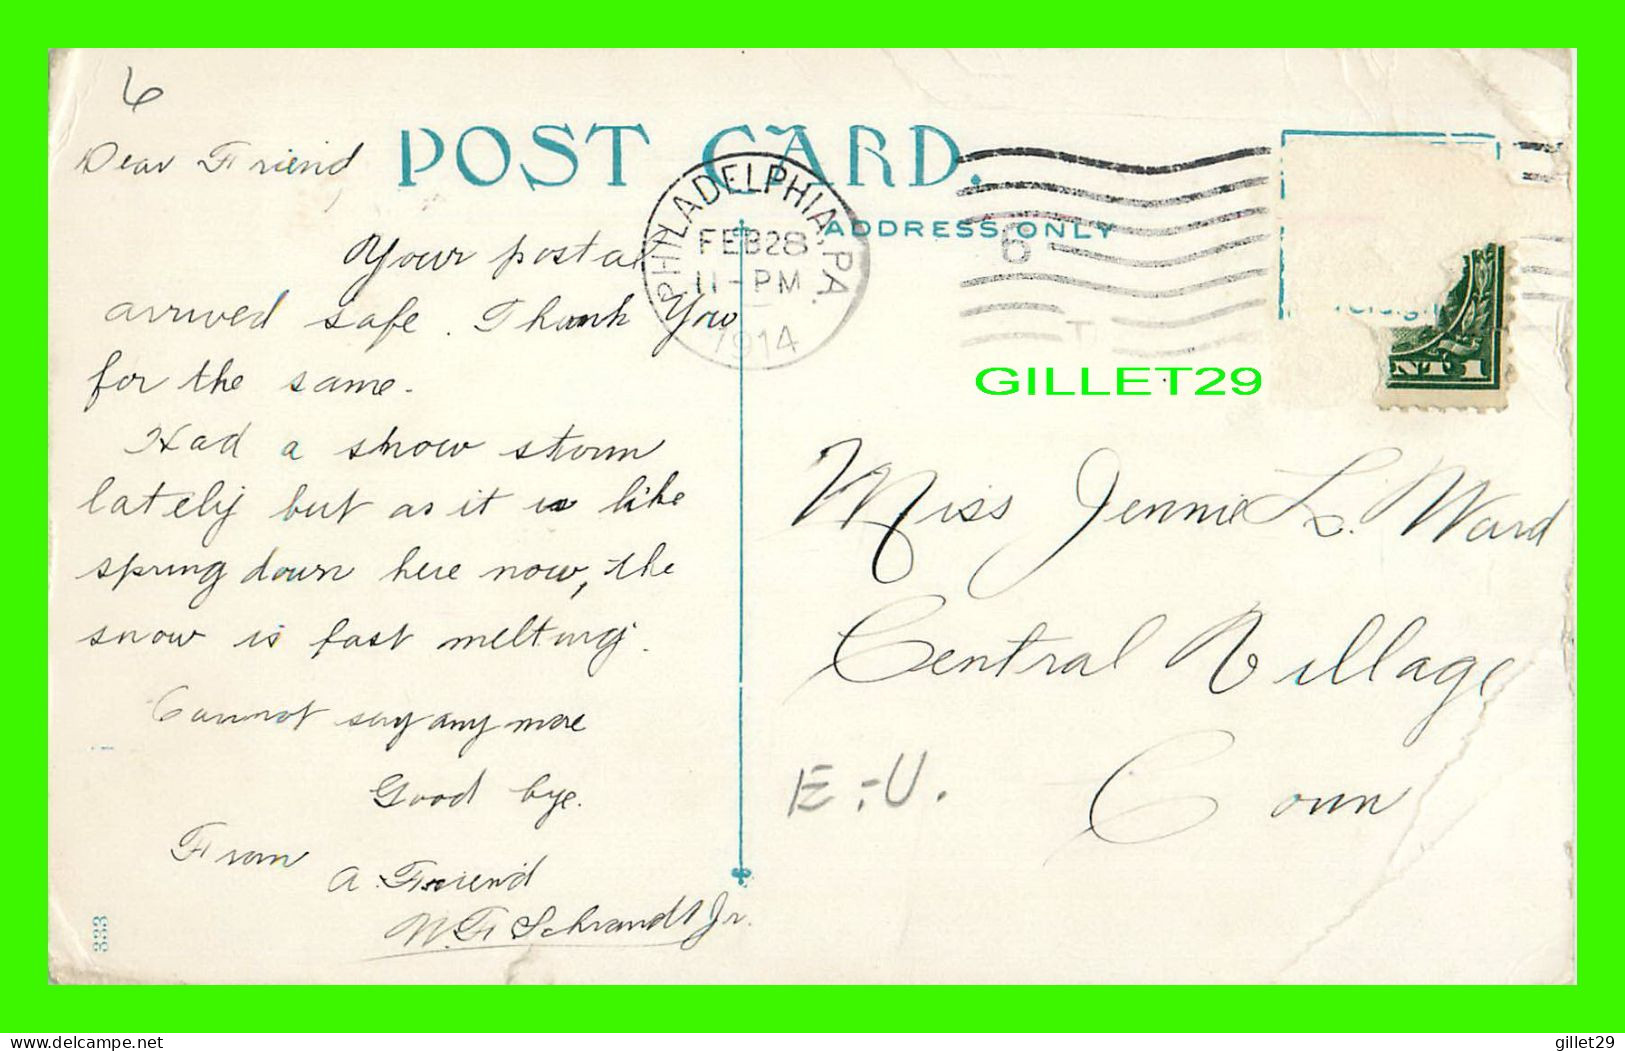 6
POST CARD.
Dear Friend
Your postal
arrived safe. Thank You
for the same.
Had a snow storm
lately but as it is like
spring down here now, the
snow is fast melting.
Cannot say any more
Good bye.
From
A Friend
W. F. Schrandt Jr.
333
PHILADELPHIA, PA.
FEB 28
11-PM
1914
ADDRESS ONLY
6
T
NT 1
GILLET29
Miss Jennie L. Ward
Central Village
Conn
E.-U.
delcampe.net
gillet29